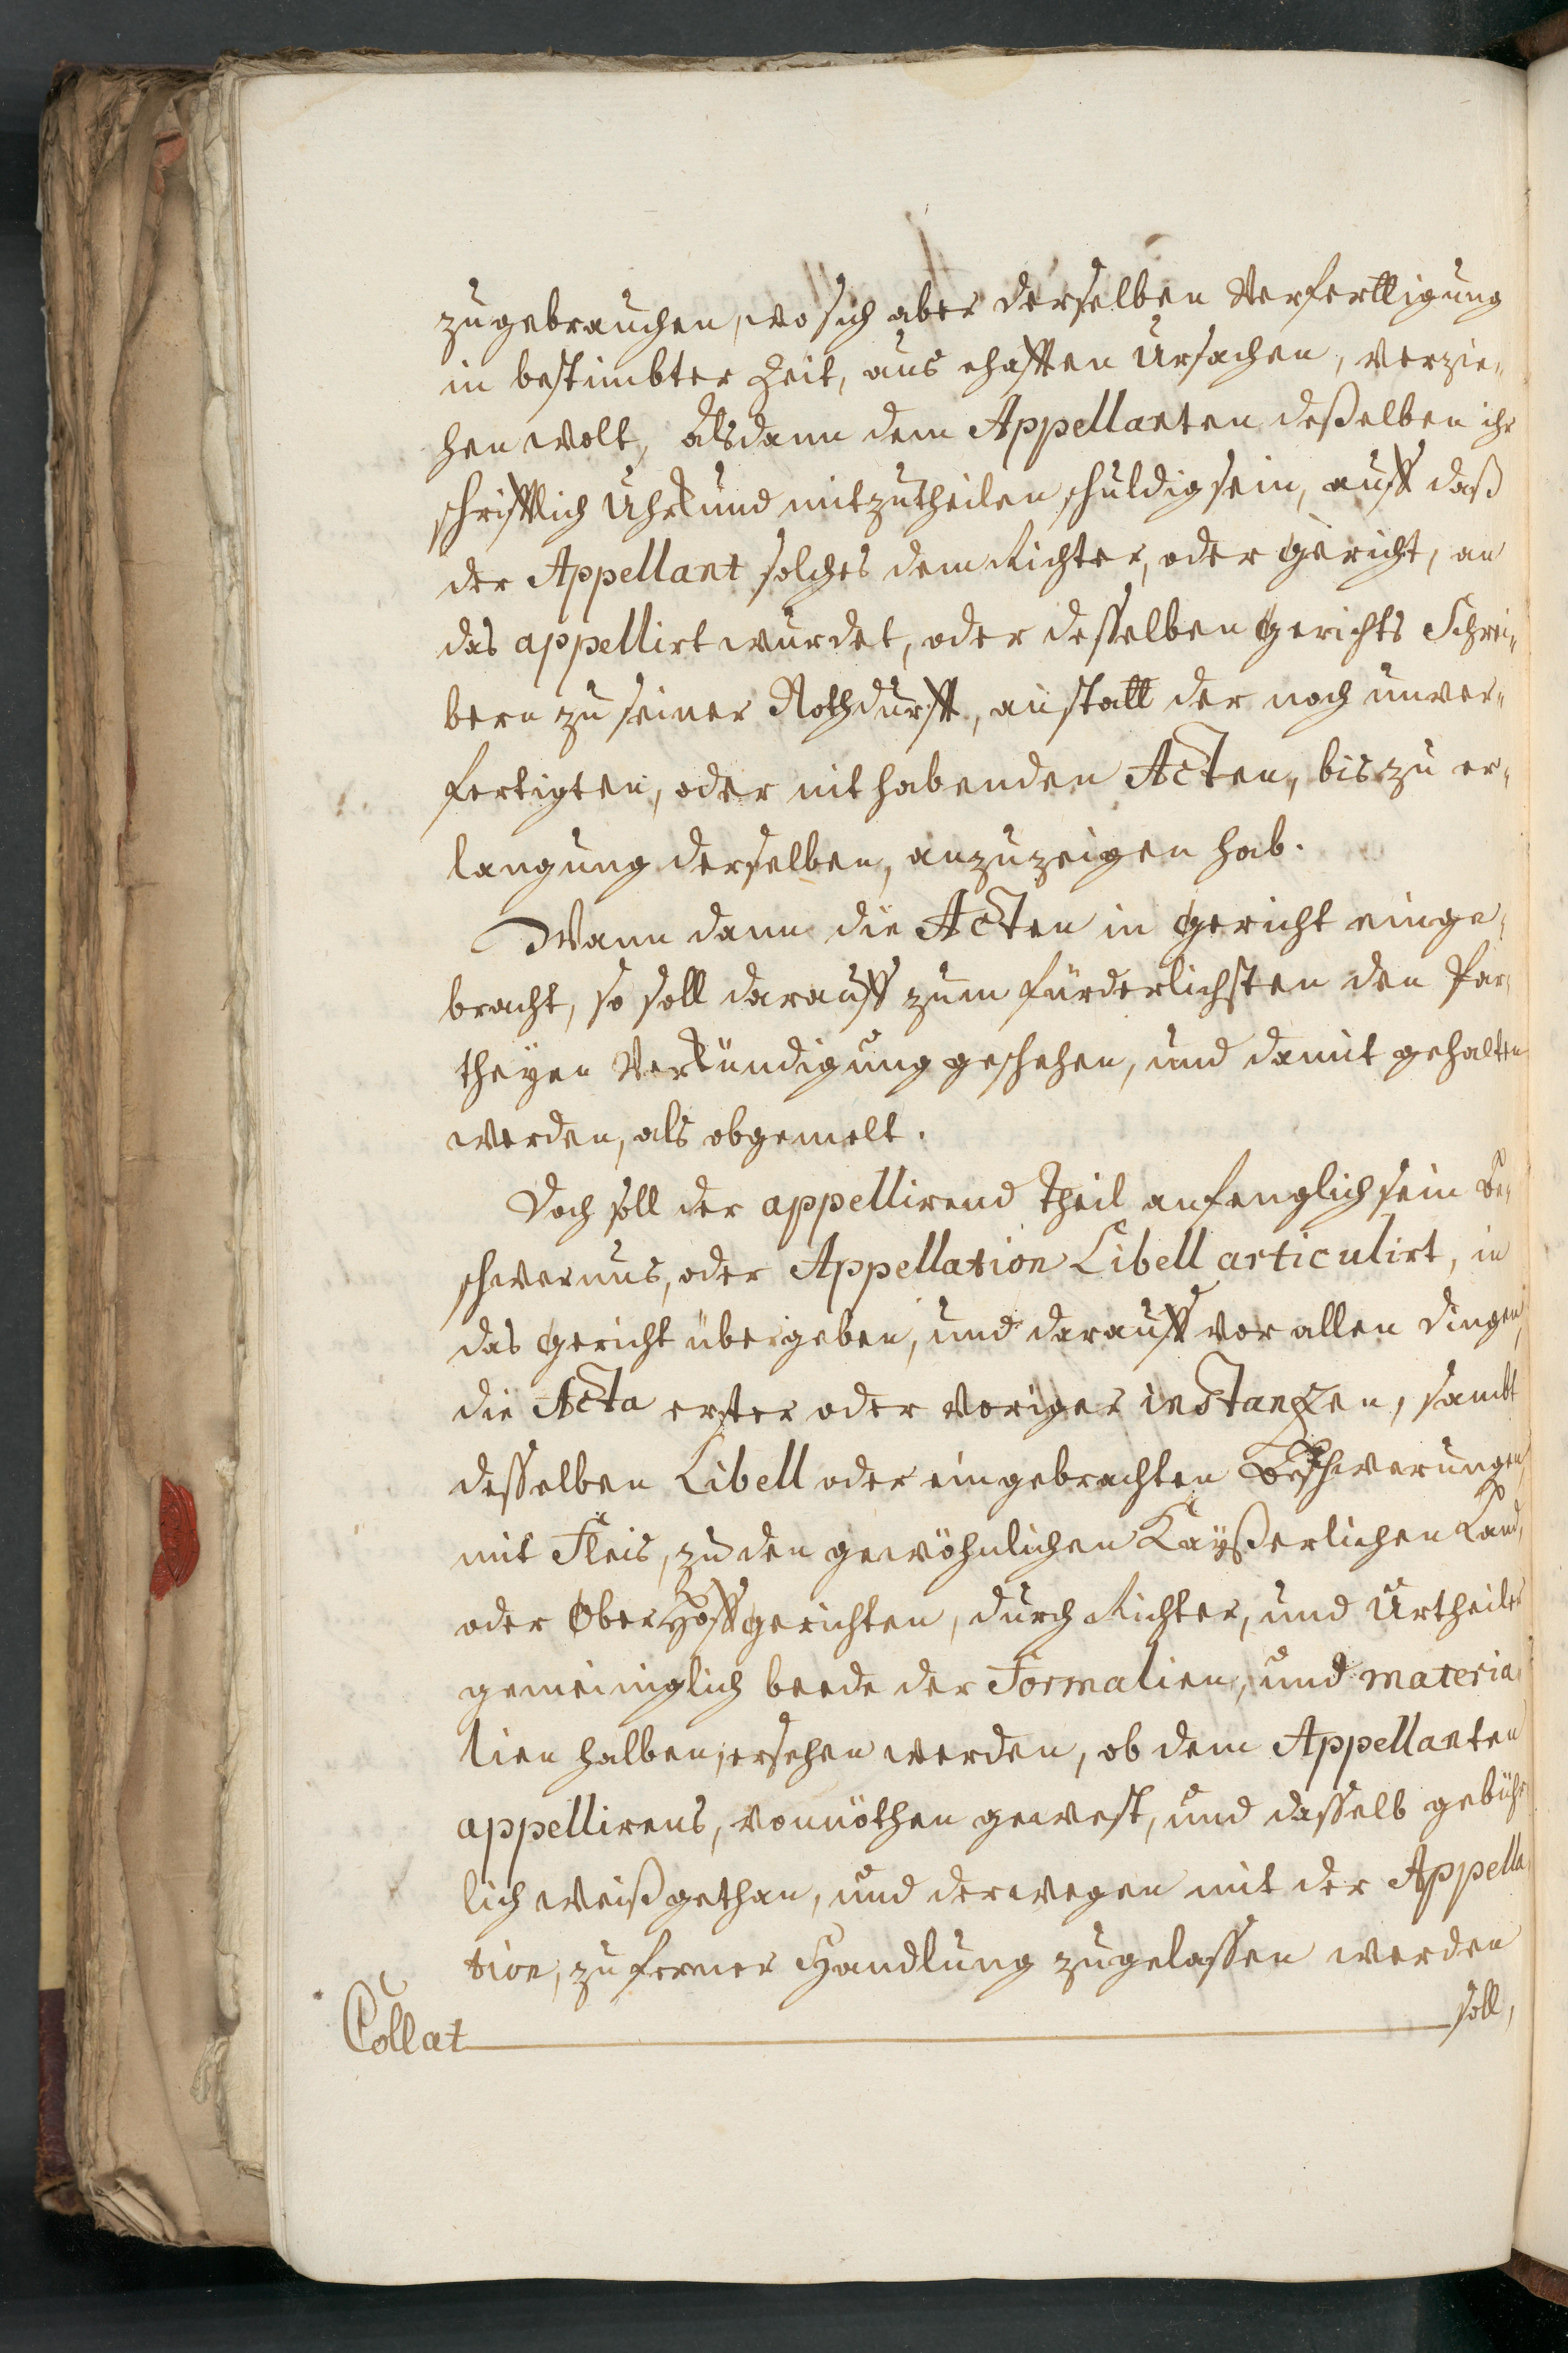 zugebrauchen, wo sich aber derselben Verferttigung
in bestimbter Zeit, aus ehafften Ursachen, verzie„
hen wolt, Alsdann dem Appellanten deßelben ihr
schrifftlich Uhrkund mitzutheilen schuldig sein, auff daß
der Appellant solches dem Richter, oder Gericht, an
das appellirt wurdet, oder desselben Gerichts Schrei„
bern zu seiner Nothdurfft, anstatt der noch unver„
fertigten, oder nit habenden Acten, bis zu er„
langung derselben, anzuzeigen hab.
Wann dann die Acten in Gericht einge„
bracht, so soll darauff zum fürderlichsten den Par„
theyen Verkündigung geschehen, und damit gehalten
werden, als obgemelt.
Doch soll der appellirend Theil anfenglich sein Be„
schwernus, oder Appellation Libell articulirt, in
das Gericht übergeben, und darauff vor allen Dingen,
die Acta erster oder voriger instanzen, sambt
desselben Libell oder eingebrachten Beschwerungen,
mit Fleis, zu den gewöhnlichen Kayßerlichen Land,
oder Ober Hoffgerichten, durch Richter, und Urtheiler
gemeiniglich beede der Formalien, und materia„
lien halben, ersehen werden, ob dem Appellanten
appellirens, vonnöthen gewest, und dasselb gebühr„
lich weiß gethan, und derwegen mit der Appella„
tion, zu ferner Handlung zugelassen werden
Collat soll,